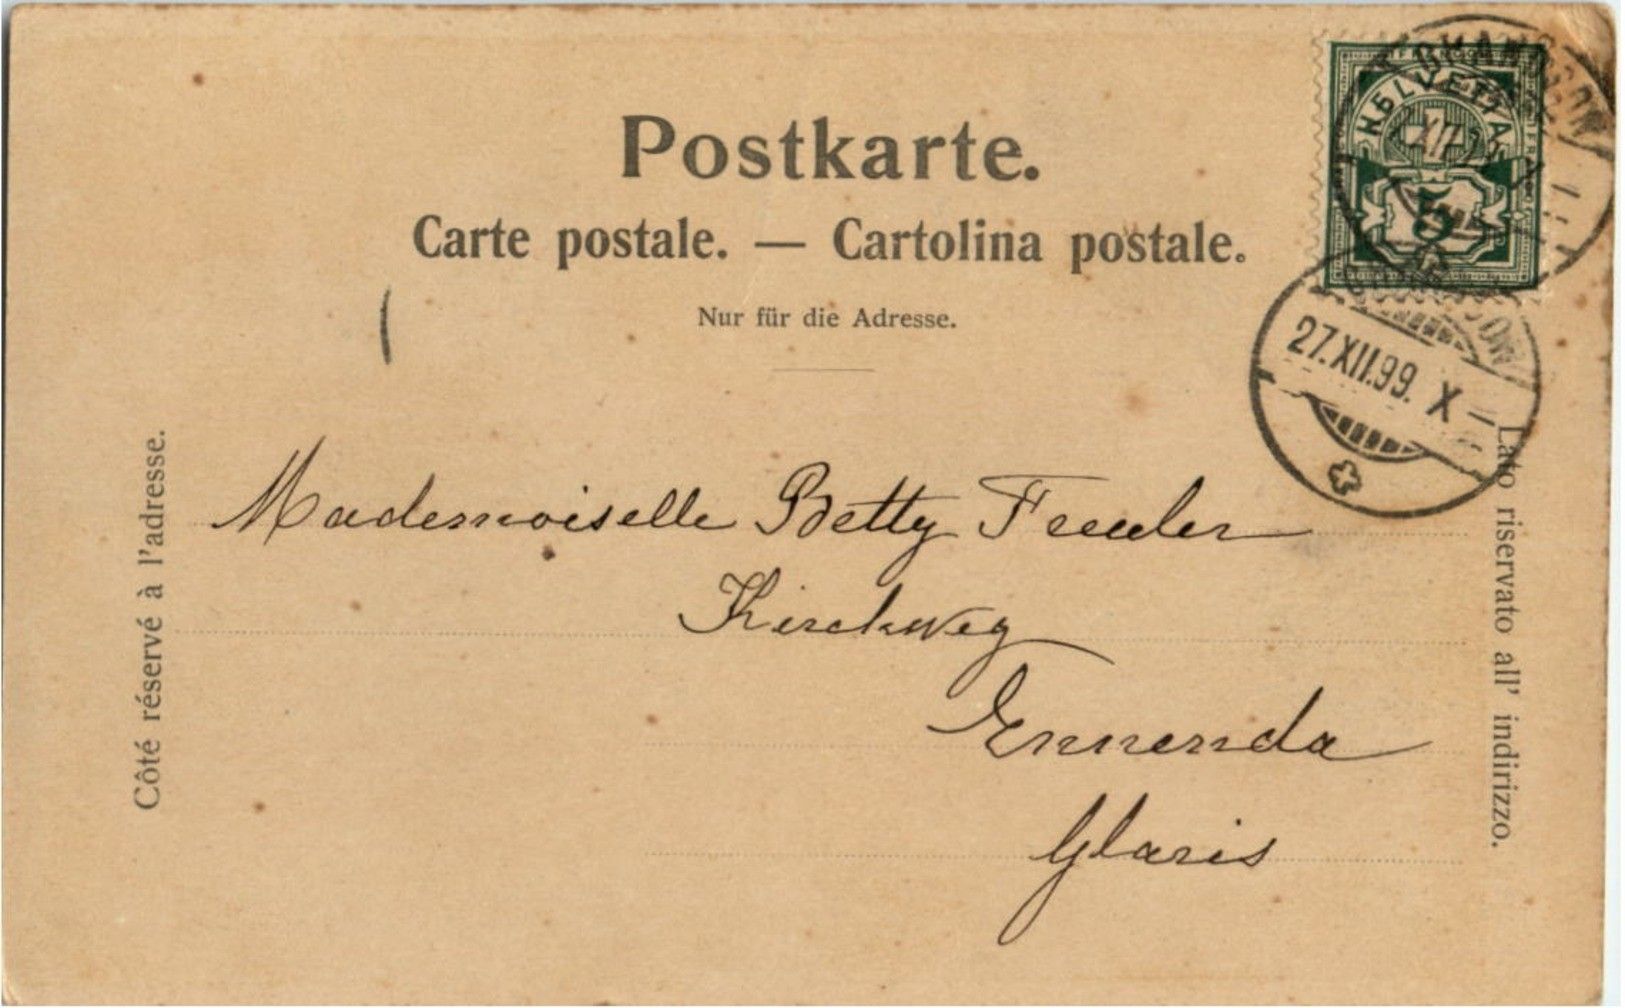 Postkarte.
Carte postale. — Cartolina postale.
Nur für die Adresse.
HELVETIA
5
27.XII.99. X —
Côté réservé à l'adresse.
Lato riservato all' indirizzo.
Mademoiselle Betty Feuler
Kirchweg
Ennenda
Glaris